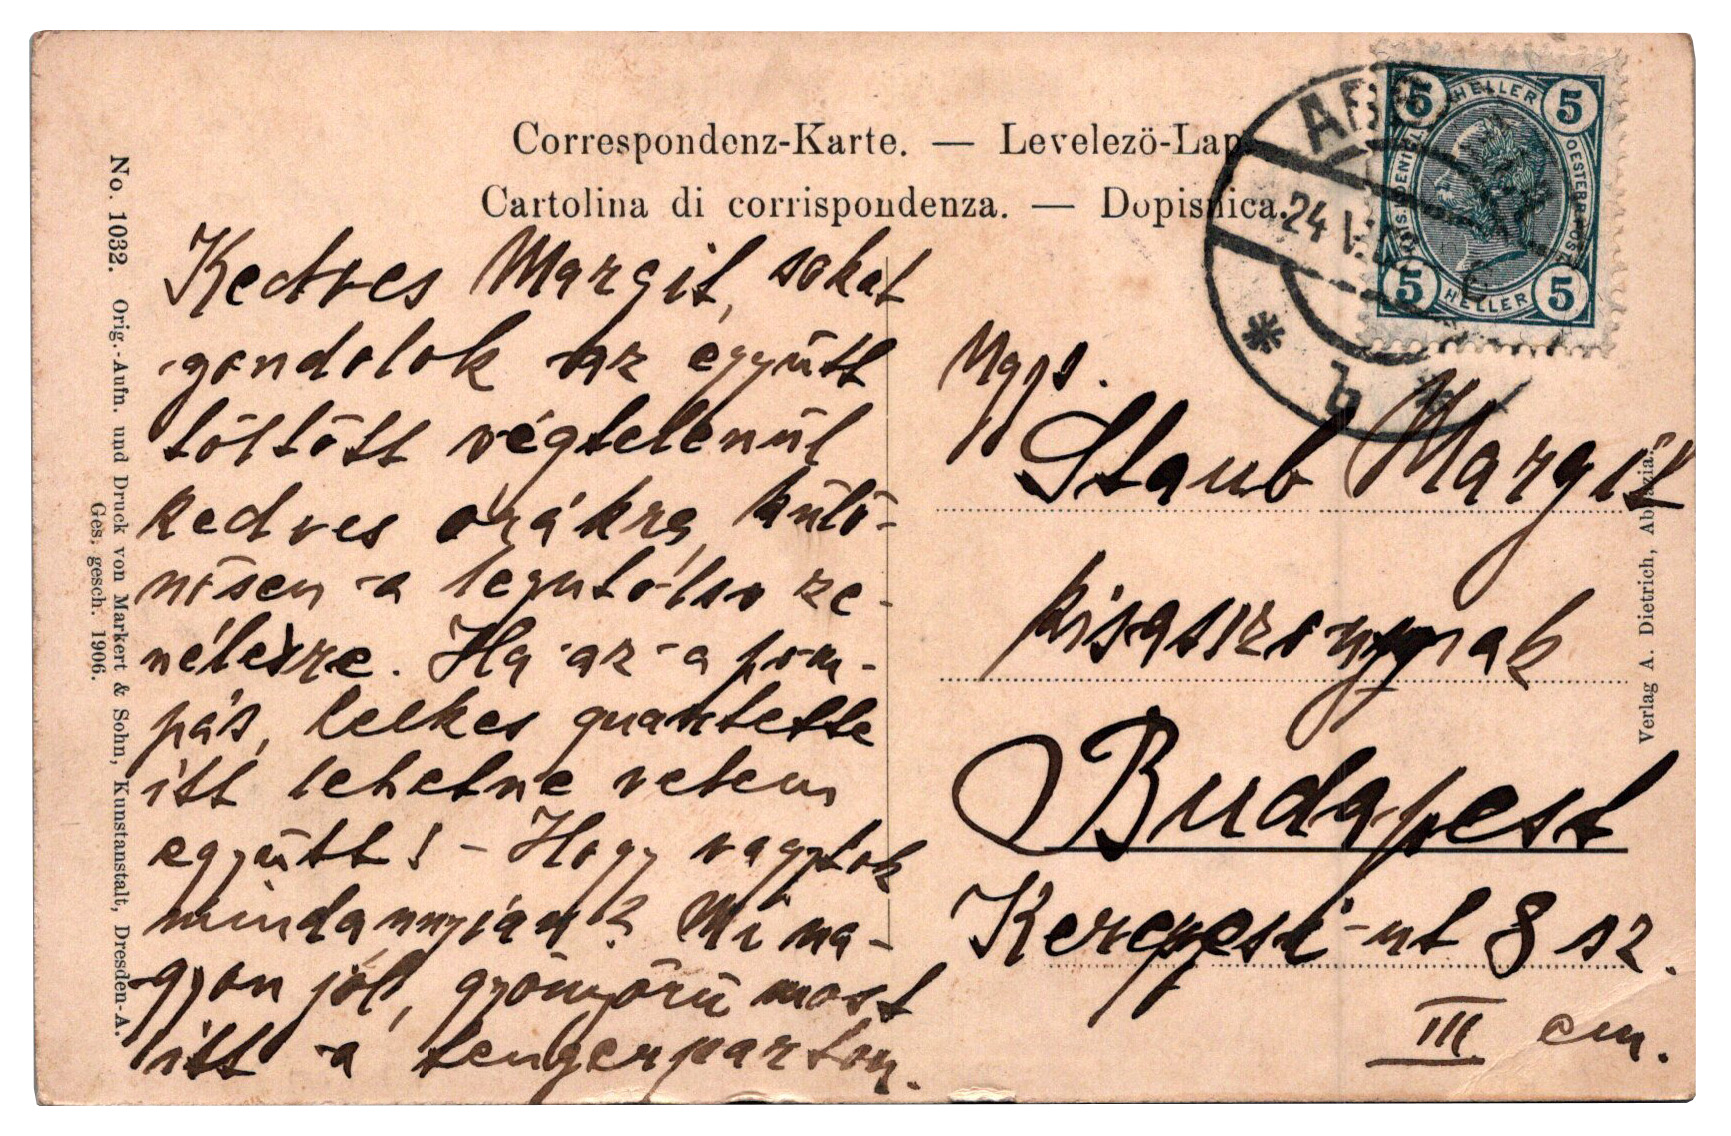 Correspondenz-Karte. — Levelezö-Lap.
Cartolina di corrispondenza. — Dopisnica.
No. 1032. Orig.-Aufn. und Druck von Markert & Sohn, Kunstanstalt, Dresden-A.
Ges. gesch. 1906.
Kedves Margit, sokat
gondolok az együtt
töltött végtelenül
kedves órákra, külö-
nösen a legutólso ze-
nélésre. Ha az a pom-
pás, lelkes quartette
itt lehetne velem
együtt! - Hogy vagytok
mindannyian? Mi na-
gyon jól, gyönyörü most
itt a tengerparton.
5 HELLER 5
KAIS. KOENIGL. OESTERR. POST
5 HELLER 5
24 V
b
Ngys.
Staub Margit
kisasszonynak
Budapest
Kerepesi-ut 8 sz.
III em.
Verlag A. Dietrich, Abbazia.